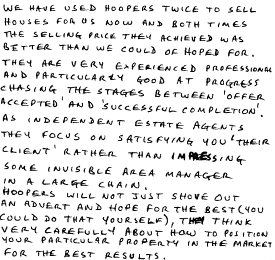 WE HAVE USED HOOPERS TWICE TO SELL
HOUSES FOR US NOW AND BOTH TIMES
THE SELLING PRICE THEY ACHIEVED WAS
BETTER THAN WE COULD OF HOPED FOR.
THEY ARE VERY EXPERIENCED PROFESSIONAL
AND PARTICULARLY GOOD AT PROGRESS
CHASING THE STAGES BETWEEN 'OFFER
ACCEPTED' AND 'SUCCESSFUL COMPLETION'.
AS INDEPENDENT ESTATE AGENTS
THEY FOCUS ON SATISFYING YOU 'THEIR
CLIENT' RATHER THAN IMPRESSING
SOME INVISIBLE AREA MANAGER
IN A LARGE CHAIN.
HOOPERS WILL NOT JUST SHOVE OUT
AN ADVERT AND HOPE FOR THE BEST (YOU
COULD DO THAT YOURSELF), THEY THINK
VERY CAREFULLY ABOUT HOW TO POSITION
YOUR PARTICULAR PROPERTY IN THE MARKET
FOR THE BEST RESULTS.